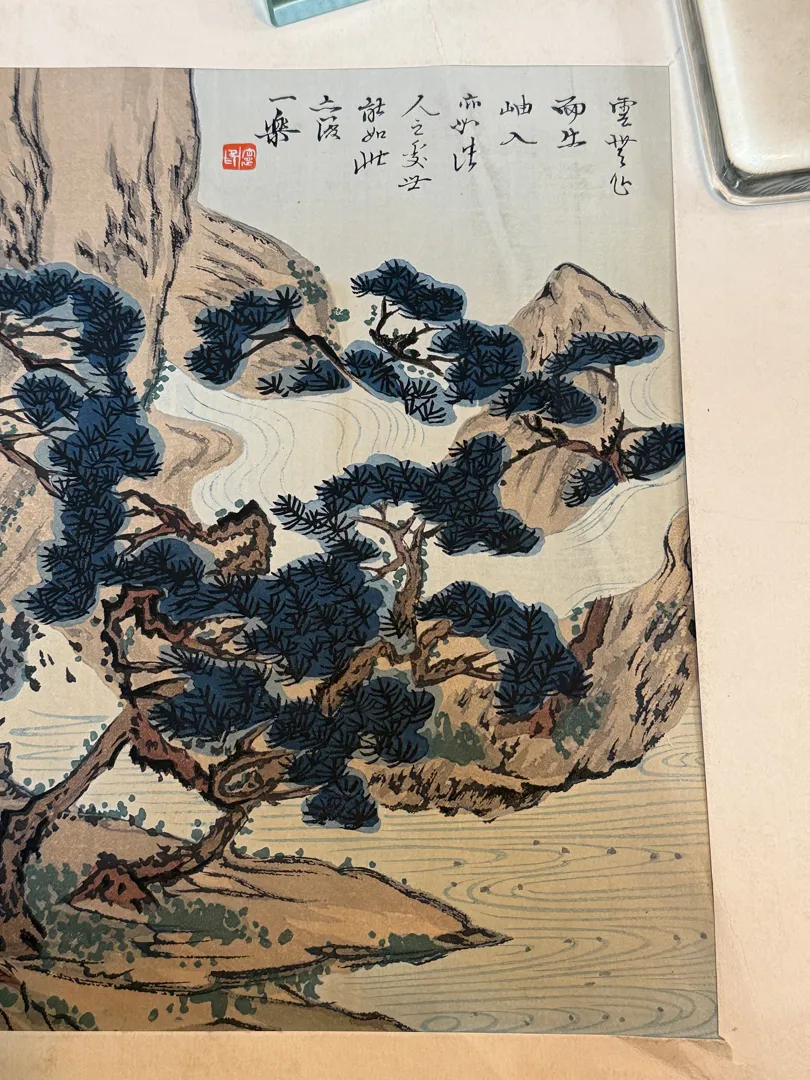 雲無心
而出
岫入
亦如
人之處世
能如此
亦復
一樂